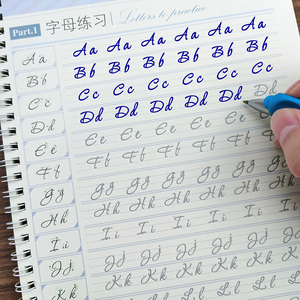 Part.1 字母练习 Letters to practice
Aa Aa Aa Aa Aa Aa Aa
Bb Bb Bb Bb Bb Bb Bb
Cc Cc Cc Cc Cc Cc Cc
Dd Dd Dd Dd Dd Dd Dd
Ee Ee Ee Ee Ee Ee
Ff Ff Ff Ff Ff Ff
Gg Gg Gg Gg Gg Gg
Hh Hh Hh Hh Hh Hh
Ii Ii Ii Ii Ii Ii
Jj Jj Jj Jj Jj
Kk Kk Kk Kk Kk
Ll Ll Ll